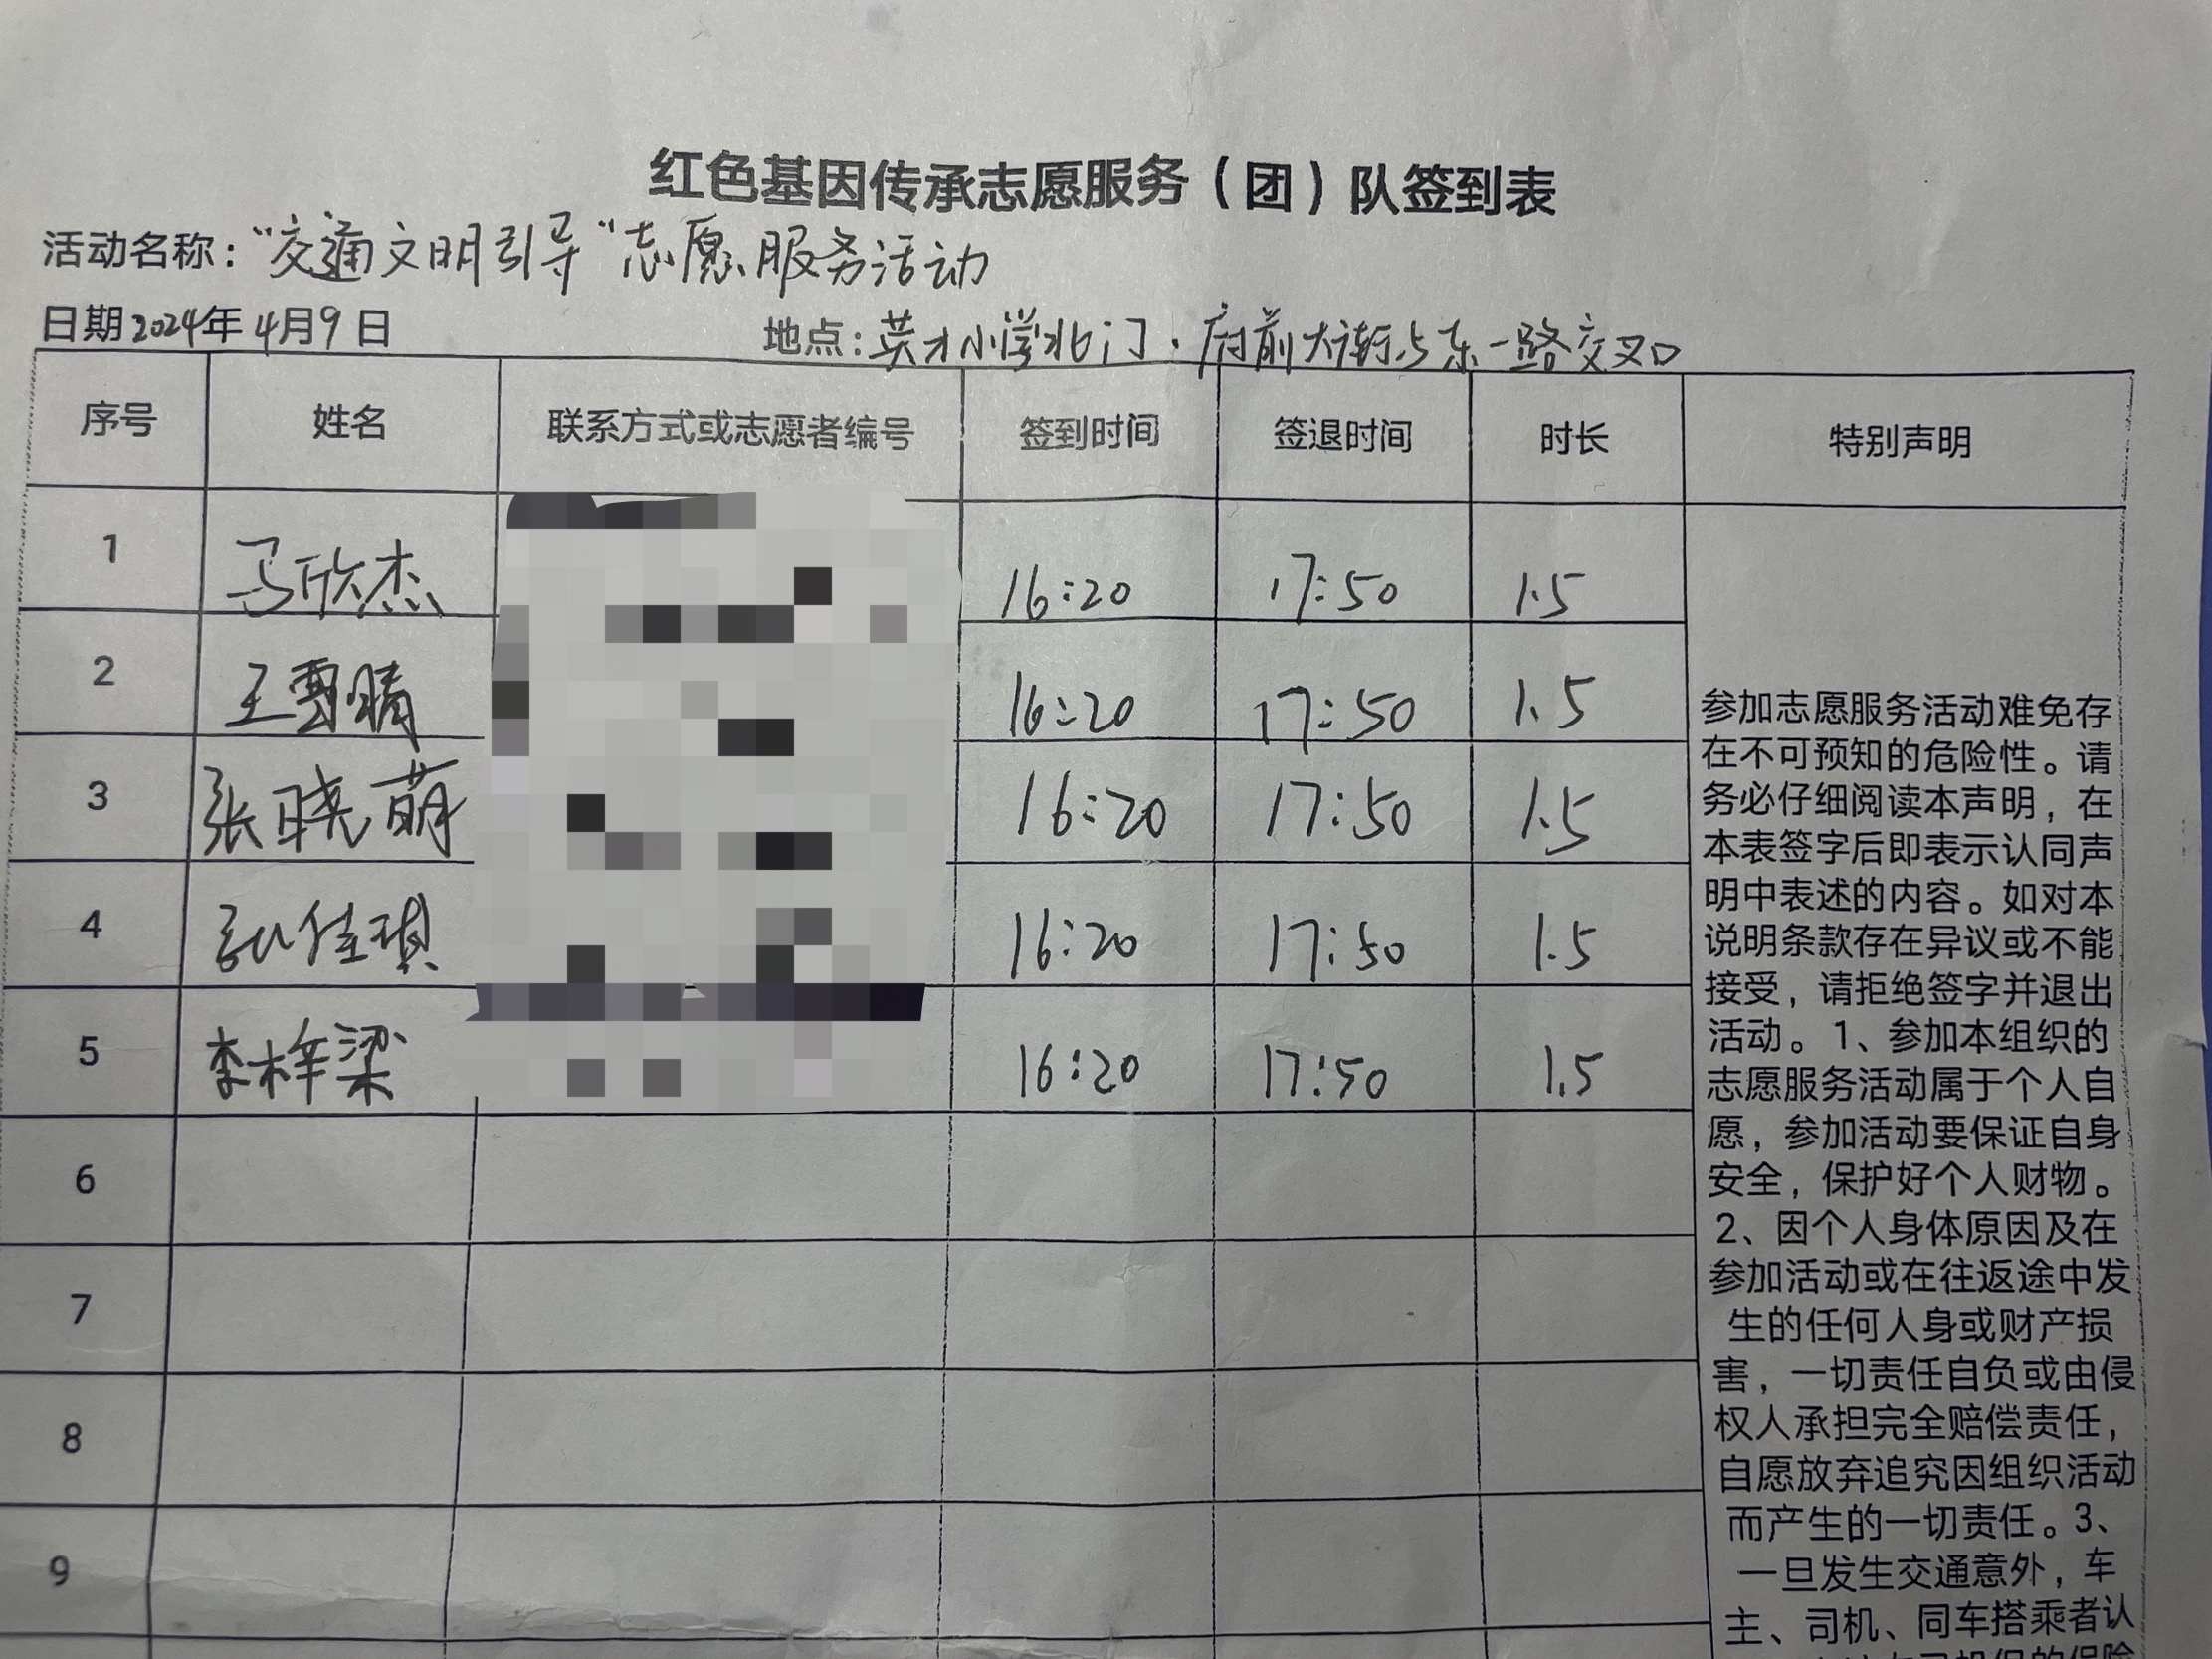 红色基因传承志愿服务（团）队签到表
活动名称：“交通文明引导“志愿服务活动
日期2024年4月9日 地点：英才小学北门、府前大街与东一路交叉口
序号 姓名 联系方式或志愿者编号 签到时间 签退时间 时长 特别声明
1 马欣杰 16:20 17:50 1.5
2 王雪晴 16:20 17:50 1.5
3 张晓萌 16:20 17:50 1.5
4 张佳琪 16:20 17:50 1.5
5 李梓梁 16:20 17:50 1.5
6
7
8
9
参加志愿服务活动难免存
在不可预知的危险性。请
务必仔细阅读本声明，在
本表签字后即表示认同声
明中表述的内容。如对本
说明条款存在异议或不能
接受，请拒绝签字并退出
活动。1、参加本组织的
志愿服务活动属于个人自
愿，参加活动要保证自身
安全，保护好个人财物。
2、因个人身体原因及在
参加活动或在往返途中发
生的任何人身或财产损
害，一切责任自负或由侵
权人承担完全赔偿责任，
自愿放弃追究因组织活动
而产生的一切责任。3、
一旦发生交通意外，车
主、司机、同车搭乘者认